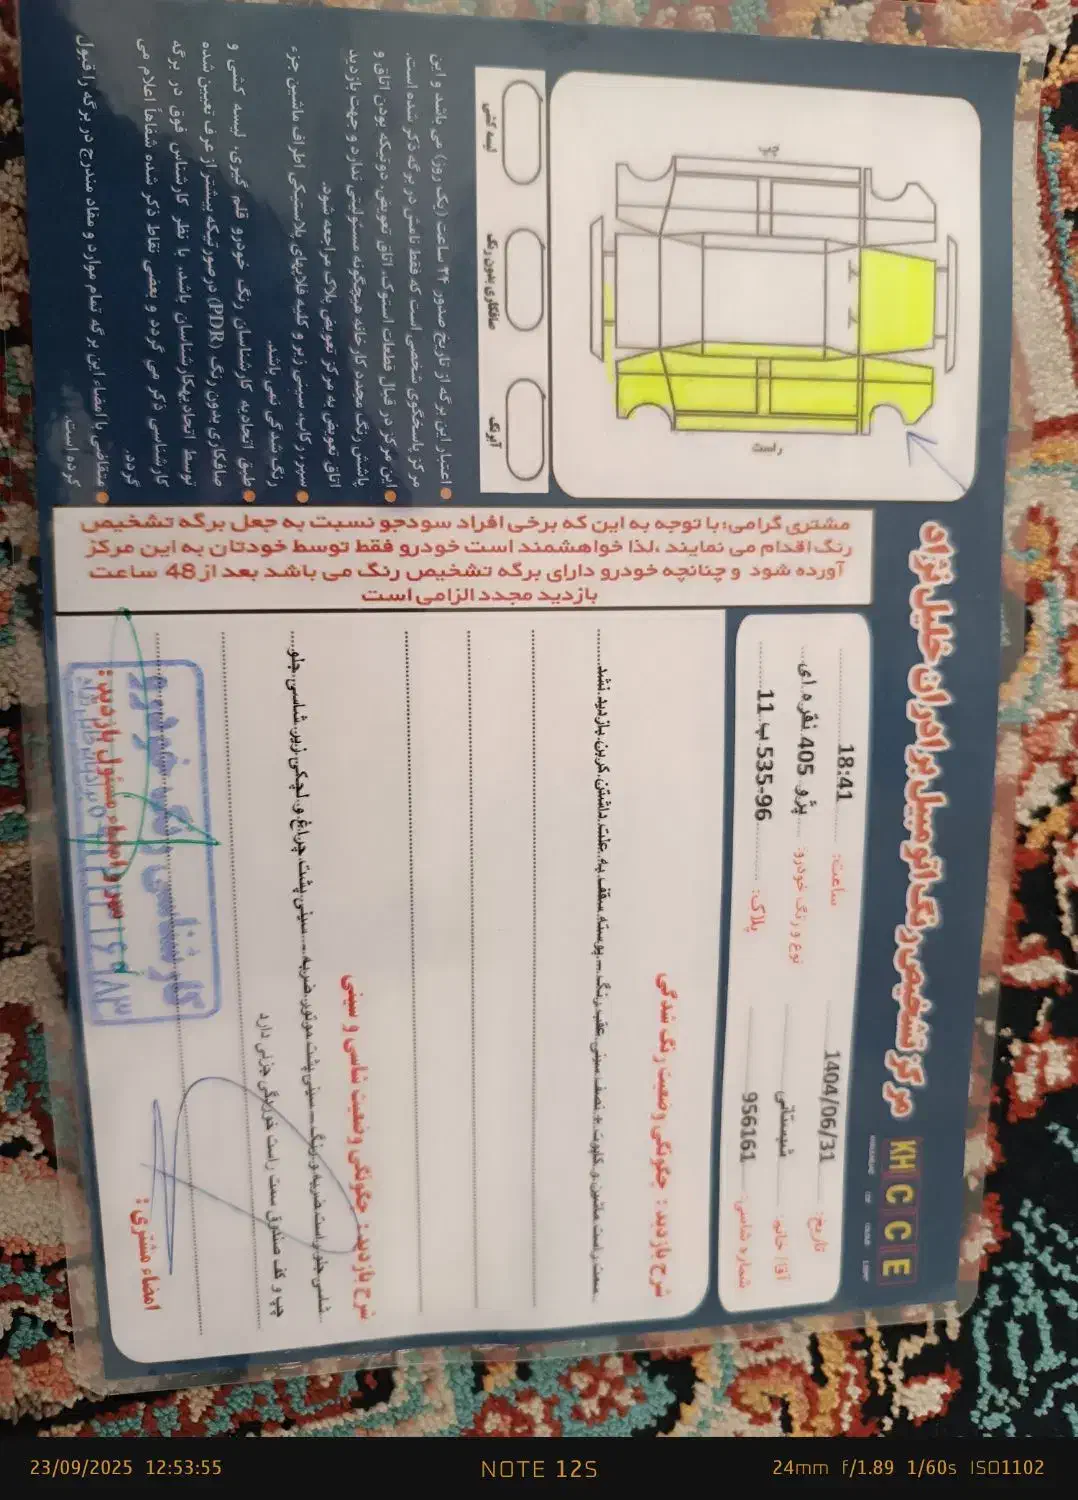 مرکز تشخیص رنگ اتومبیل برادران خلیل نژاد
KH C C E
تاریخ: 1404/06/31
ساعت: 18:41
آقا/ خانم: شبستانی
نوع و رنگ خودرو: پژو 405 نقره ای
شماره شاسی: 956161
پلاک: 96-535 ب 11
شرح بازدید: چگونگی وضعیت رنگ شدگی
سمت راست ماشین و کاپوت + نصف سینی عقب رنگ - پوسته سقف به علت داشتن کربن بازدید نشد
شرح بازدید: چگونگی وضعیت شاسی و سینی
شاسی جلو راست ضربه و رنگ - سینی پشت موتور ضربه - سینی پشت چراغ و لچکی زیر شاسی جلو
چپ و کف صندوق سمت راست خوردگی جزئی دارد
امضاء مشتری:
مهر و امضاء مسئول بازدید:
کارشناسی رنگ خودرو
راست
چپ
آبرنگ
صافکاری بدون رنگ
لیسه کشی
مشتری گرامی؛ با توجه به این که برخی افراد سودجو نسبت به جعل برگه تشخیص
رنگ اقدام می نمایند ،لذا خواهشمند است خودرو فقط توسط خودتان به این مرکز
آورده شود و چنانچه خودرو دارای برگه تشخیص رنگ می باشد بعد از 48 ساعت
بازدید مجدد الزامی است
اعتبار این برگه از تاریخ صدور ۲۴ ساعت (یک روز) می باشد و این
مرکز پاسخگوی شخصی است که فقط نامش در برگه ذکر شده است.
این مرکز در قبال قطعات استوک، اتاق تعویض، دوتیکه بودن اتاق و
پاشش رنگ مجدد کارخانه هیچگونه مسئولیتی ندارد و جهت بازدید
اتاق تعویض به مرکز تعویض پلاک مراجعه شود.
سپر، رکاب، سینی زیر و کلیه قلابهای پلاستیکی اطراف ماشین جزء
رنگ شدگی نمی باشد.
طبق اتحادیه کارشناسان رنگ خودرو قلم گیری، لیسه کشی و
صافکاری بدون رنگ (PDR) درصورتیکه بیشتر از عرف تعیین شده
توسط اتحادیه کارشناسان باشد، با نظر کارشناس فوق در برگه
کارشناسی ذکر می گردد و بعضی نقاط ذکر شده شفاهاً اعلام می
گردد.
متقاضی با امضاء این برگه تمام موارد و مفاد مندرج در برگه را قبول
کرده است.
23/09/2025 12:53:55
NOTE 12S
24mm f/1.89 1/60s ISO1102